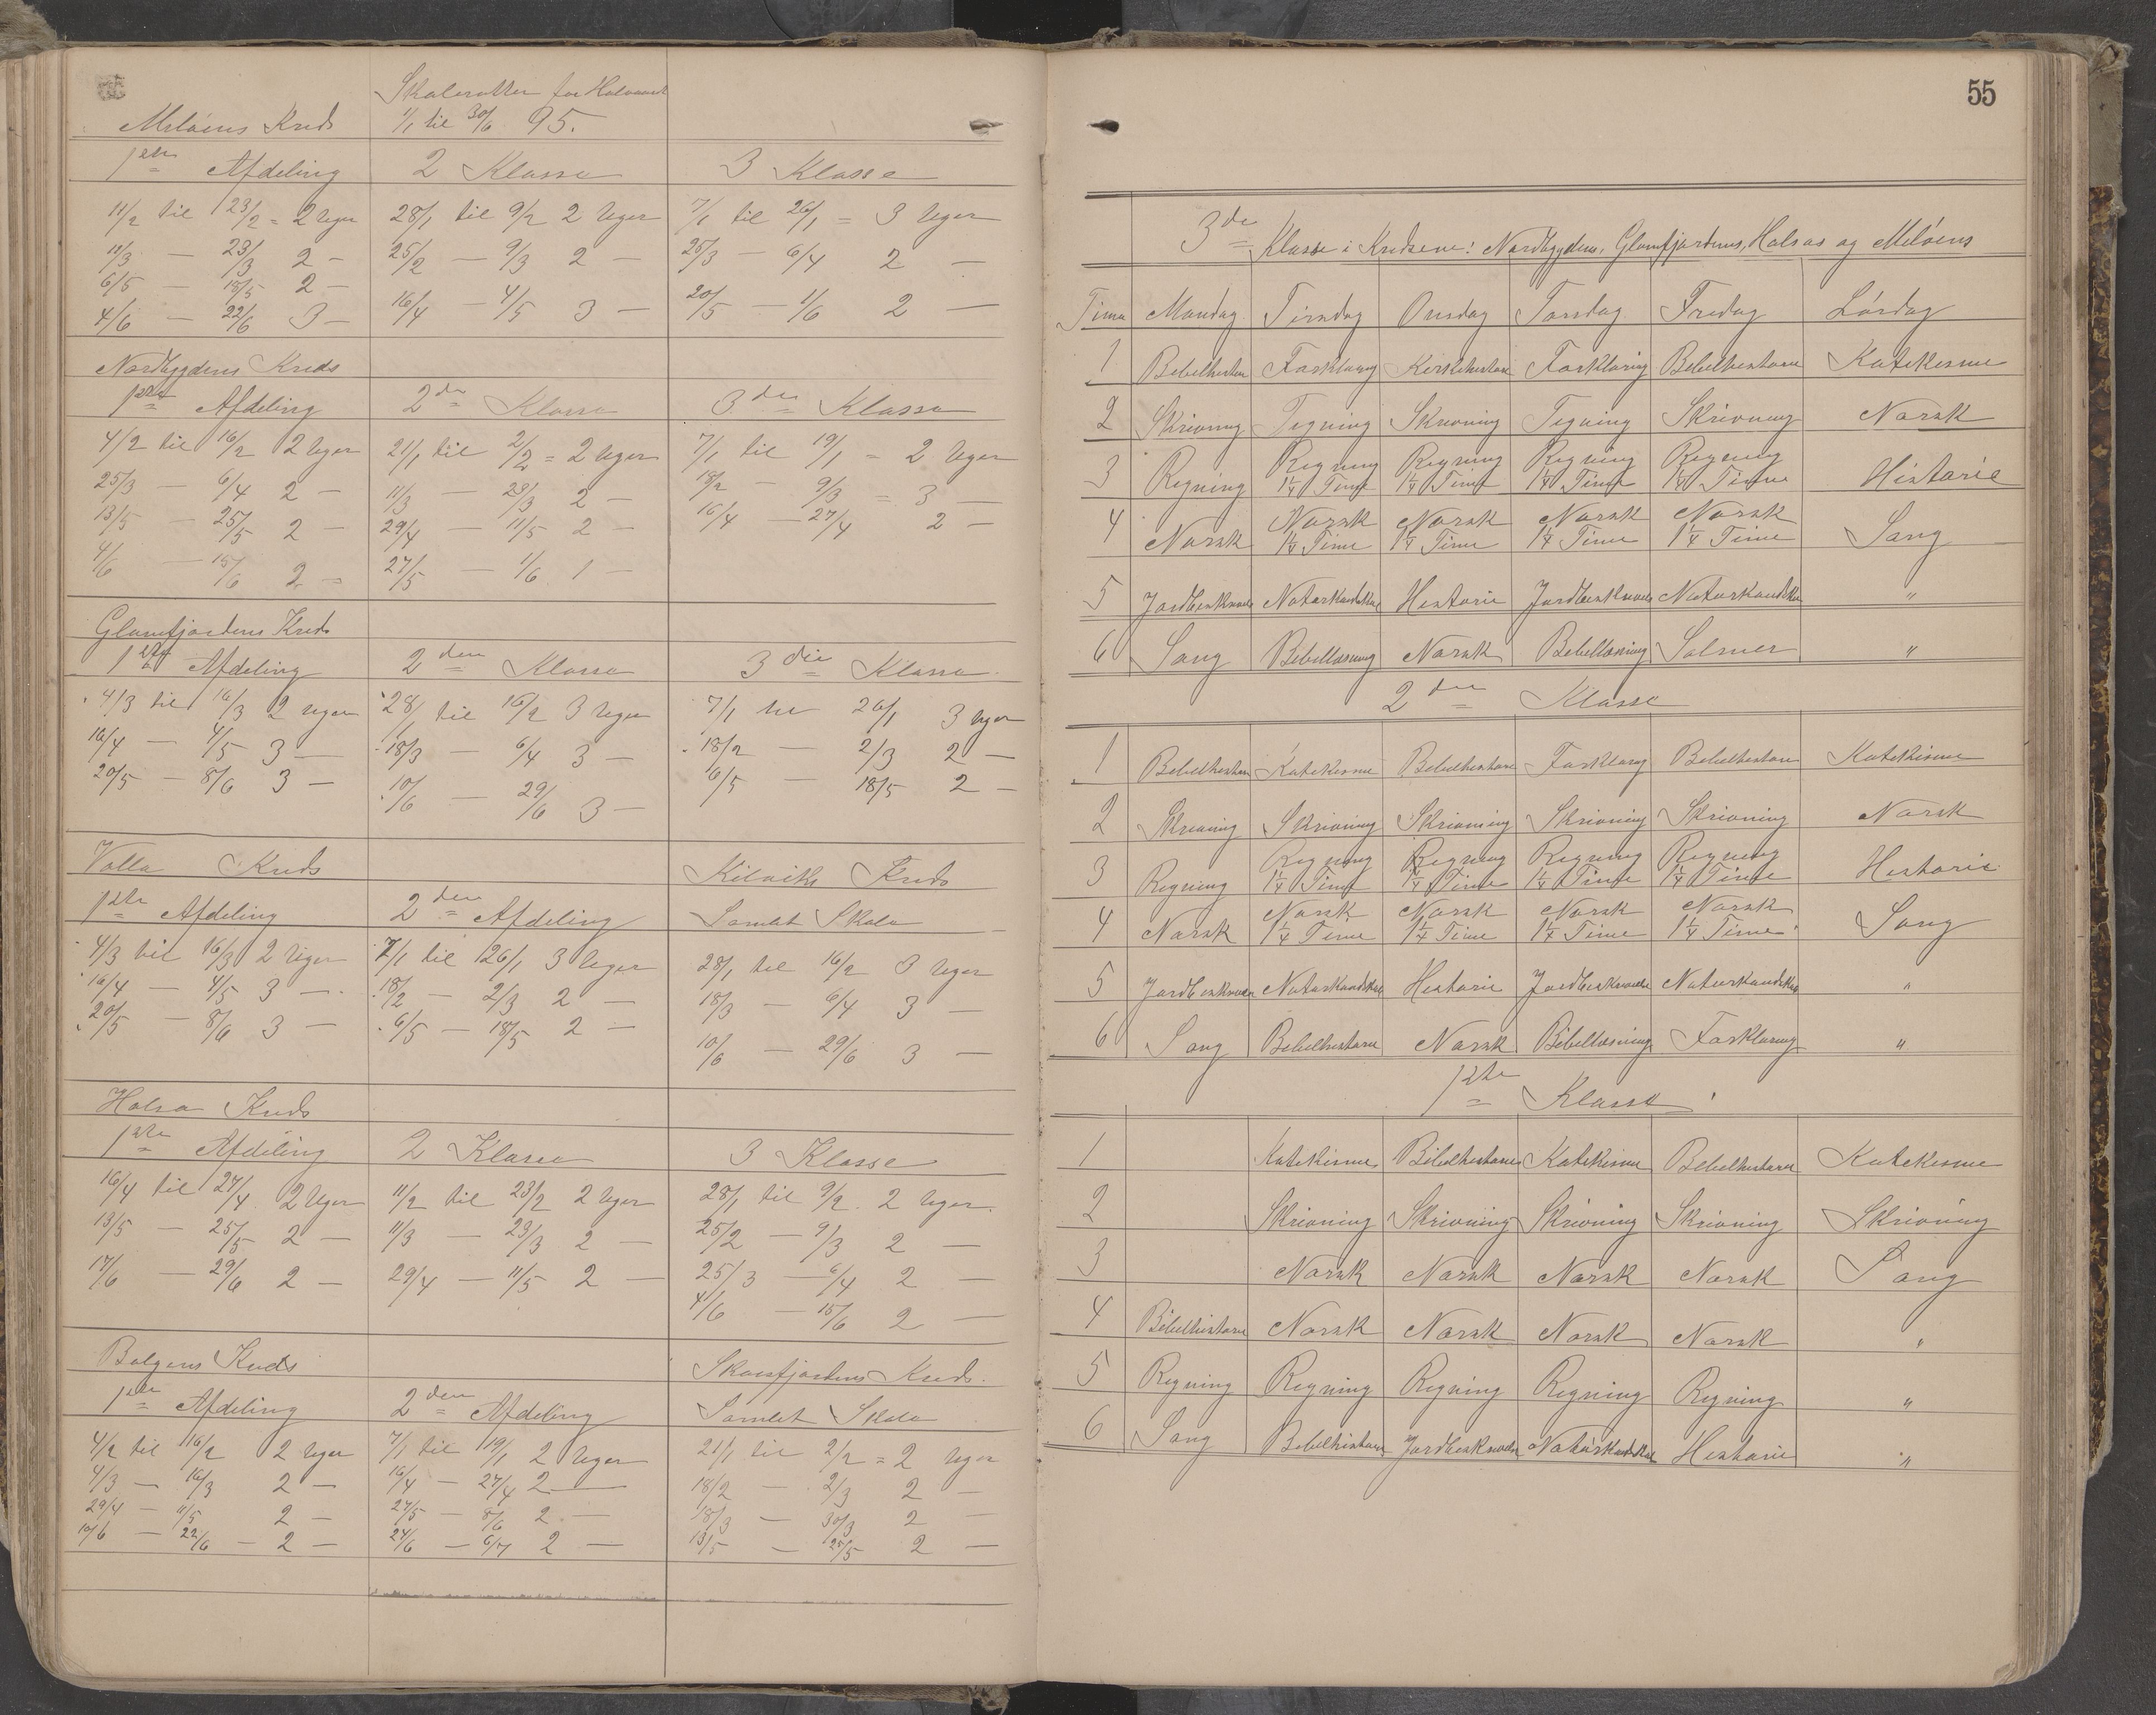 Skoleruten for Halvaaret
Meløens Kreds 1/1 til 30/6 95.
1ste Afdeling 2 Klasse 3 Klasse
11/2 til 23/2 = 2 Uger 28/1 til 9/2 2 Uger 7/1 til 26/1 = 3 Uger
11/3 — 23/3 2 — 25/2 — 9/3 2 — 25/3 — 6/4 2 —
6/5 — 18/5 2 — 16/4 — 4/5 3 — 20/5 — 1/6 2 —
4/6 — 22/6 3 —
Nordbygdens Kreds
1ste Afdeling 2den Klasse 3die Klasse
4/2 til 16/2 2 Uger 21/1 til 2/2 = 2 Uger 7/1 til 19/1 = 2 Uger
25/3 — 6/4 2 — 11/3 — 23/3 2 — 18/2 — 9/3 = 3 —
13/5 — 25/5 2 — 29/4 — 11/5 2 — 16/4 — 27/4 2 —
4/6 — 15/6 2 — 27/5 — 1/6 1 —
Glomfjordens Kreds
1ste Afdeling 2den Klasse 3die Klasse
4/3 til 16/3 2 Uger 28/1 til 16/2 3 Uger 7/1 til 26/1 3 Uger
16/4 — 4/5 3 — 18/3 — 6/4 3 — 18/2 — 2/3 2 —
20/5 — 8/6 3 — 10/6 — 29/6 3 — 6/5 — 18/5 2 —
Valla Kreds Kilviks Kreds
1ste Afdeling 2den Afdeling Samlet Skole
4/3 til 16/3 2 Uger 7/1 til 26/1 3 Uger 28/1 til 16/2 3 Uger
16/4 — 4/5 3 — 18/2 — 2/3 2 — 18/3 — 6/4 3 —
20/5 — 8/6 3 — 6/5 — 18/5 2 — 10/6 — 29/6 3 —
Halsa Kreds
1ste Afdeling 2 Klasse 3 Klasse
16/4 til 27/4 2 Uger 11/2 til 23/2 2 Uger 28/1 til 9/2 2 Uger.
13/5 — 25/5 2 — 11/3 — 23/3 2 — 25/2 — 9/3 2 —
17/6 — 29/6 2 — 29/4 — 11/5 2 — 25/3 — 6/4 2 —
4/6 — 15/6 2 —
Bolgens Kreds Skarsfjordens Kreds.
1ste Afdeling 2den Afdeling Samlet Skole
4/2 til 16/2 2 Uger 7/1 til 19/1 2 Uger 21/1 til 2/2 = 2 Uger
4/3 — 16/3 2 — 16/4 — 27/4 2 — 18/2 — 2/3 2 —
29/4 — 11/5 2 — 27/5 — 8/6 2 — 18/3 — 30/3 2 —
10/6 — 22/6 — 2 — 24/6 — 6/7 2 — 13/5 — 25/5 2 —
55
3die Klasse i Kredsene: Nordbygdens, Glomfjordens, Halsas og Meløens
Time Mandag Tirsdag Onsdag Torsdag Fredag Lørdag
1 Bibelhistorie Forklaring Kirkehistorie Forklaring Bibelhistorie Katekisme
2 Skrivning Tegning Skrivning Tegning Skrivning Norsk
3 Regning Regning 1¼ Time Regning 1¼ Time Regning 1¼ Time Regning 1¼ Time Historie
4 Norsk Norsk 1¼ Time Norsk 1¼ Time Norsk 1¼ Time Norsk 1¼ Time Sang
5 Jordbeskrivelse Naturkundskab Historie Jordbeskrivelse Naturkundskab "
6 Sang Bibellæsning Norsk Bibellæsning Salmer "
2den Klasse
1 Bibelhistorie Katekisme Bibelhistorie Forklaring Bibelhistorie Katekisme
2 Skrivning Skrivning Skrivning Skrivning Skrivning Norsk
3 Regning Regning 1¼ Time Regning 1¼ Time Regning 1¼ Time Regning 1¼ Time Historie
4 Norsk Norsk 1¼ Time Norsk 1¼ Time Norsk 1¼ Time Norsk 1¼ Time Sang
5 Jordbeskrivelse Naturkundskab Historie Jordbeskrivelse Naturkundskab "
6 Sang Bibelhistorie Norsk Bibellæsning Forklaring "
1ste Klasse
1 Katekisme Bibelhistorie Katekisme Bibelhistorie Katekisme
2 Skrivning Skrivning Skrivning Skrivning Skrivning
3 Norsk Norsk Norsk Norsk Sang
4 Bibelhistorie Norsk Norsk Norsk Norsk "
5 Regning Regning Regning Regning Regning "
6 Sang Bibelhistorie Jordbeskrivelse Naturkundskab Historie "